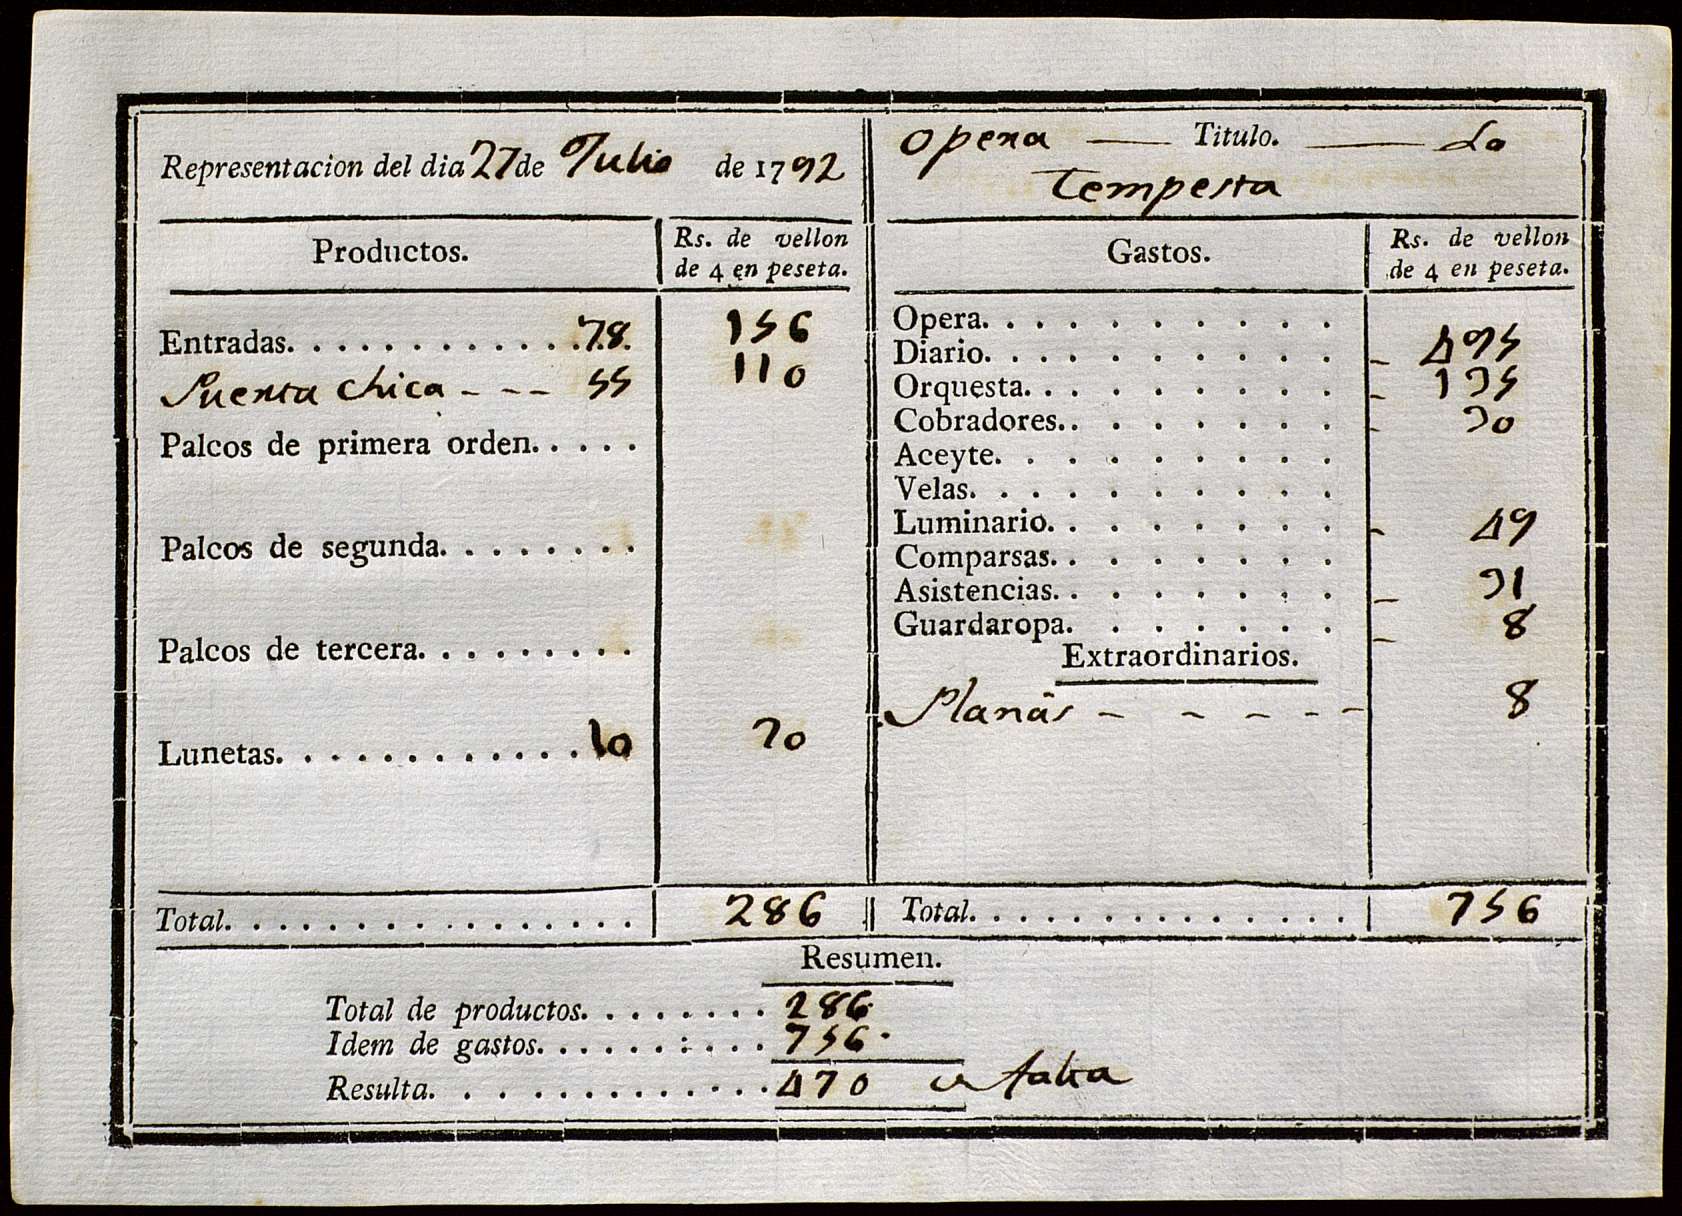 Representacion del dia 27 de Julio de 1792
Productos. Rs. de vellon
de 4 en peseta.
Entradas. . . . . . . . . . . . 78. 156
Puerta chica - - - 55 110
Palcos de primera orden. . . . .
Palcos de segunda. . . . . . . .
Palcos de tercera. . . . . . . . .
Lunetas. . . . . . . . . . . . 10 20
Total. . . . . . . . . . . . . . . . 286
Opera — Titulo. — La
Tempesta
Gastos. Rs. de vellon
de 4 en peseta.
Opera. . . . . . . . . .
Diario. . . . . . . . . . - 495
Orquesta. . . . . . . . . - 135
Cobradores. . . . . . . . - 30
Aceyte. . . . . . . . .
Velas. . . . . . . . . .
Luminario. . . . . . . . - 49
Comparsas. . . . . . . .
Asistencias. . . . . . . . - 31
Guardaropa. . . . . . . - 8
Extraordinarios.
Planãs - - - - - 8
Total. . . . . . . . . . . . . . . 756
Resumen.
Total de productos. . . . . . . . 286.
Idem de gastos. . . . . . . . . . 756.
Resulta. . . . . . . . . . . . 470 en falta